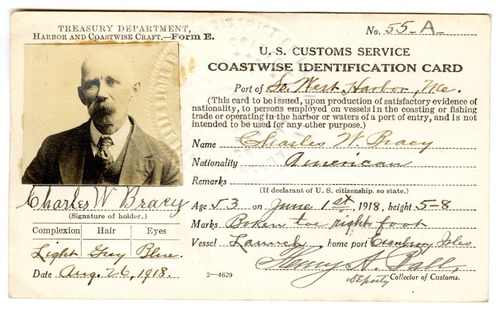 TREASURY DEPARTMENT,
HARBOR AND COASTWISE CRAFT.—FORM E.
No. 55-A-
U. S. CUSTOMS SERVICE
COASTWISE IDENTIFICATION CARD
Port of So. West Harbor, Me.
(This card to be issued, upon production of satisfactory evidence of
nationality, to persons employed on vessels in the coasting or fishing
trade or operating in the harbor or waters of a port of entry, and is not
intended to be used for any other purpose.)
Name Charles W. Bracy
Nationality American
Remarks
(If declarant of U. S. citizenship, so state.)
Age 53 on June 1st 1918, height 5-8
Marks Boken toe right foot
Vessel Launch home port Cranberry Isles
Henry A.
Deputy Collector of Customs.
Charles W Bracy
(Signature of holder.)
Complexion Hair Eyes
Light Grey Blue.
Date Aug. 26, 1918.
2—4629